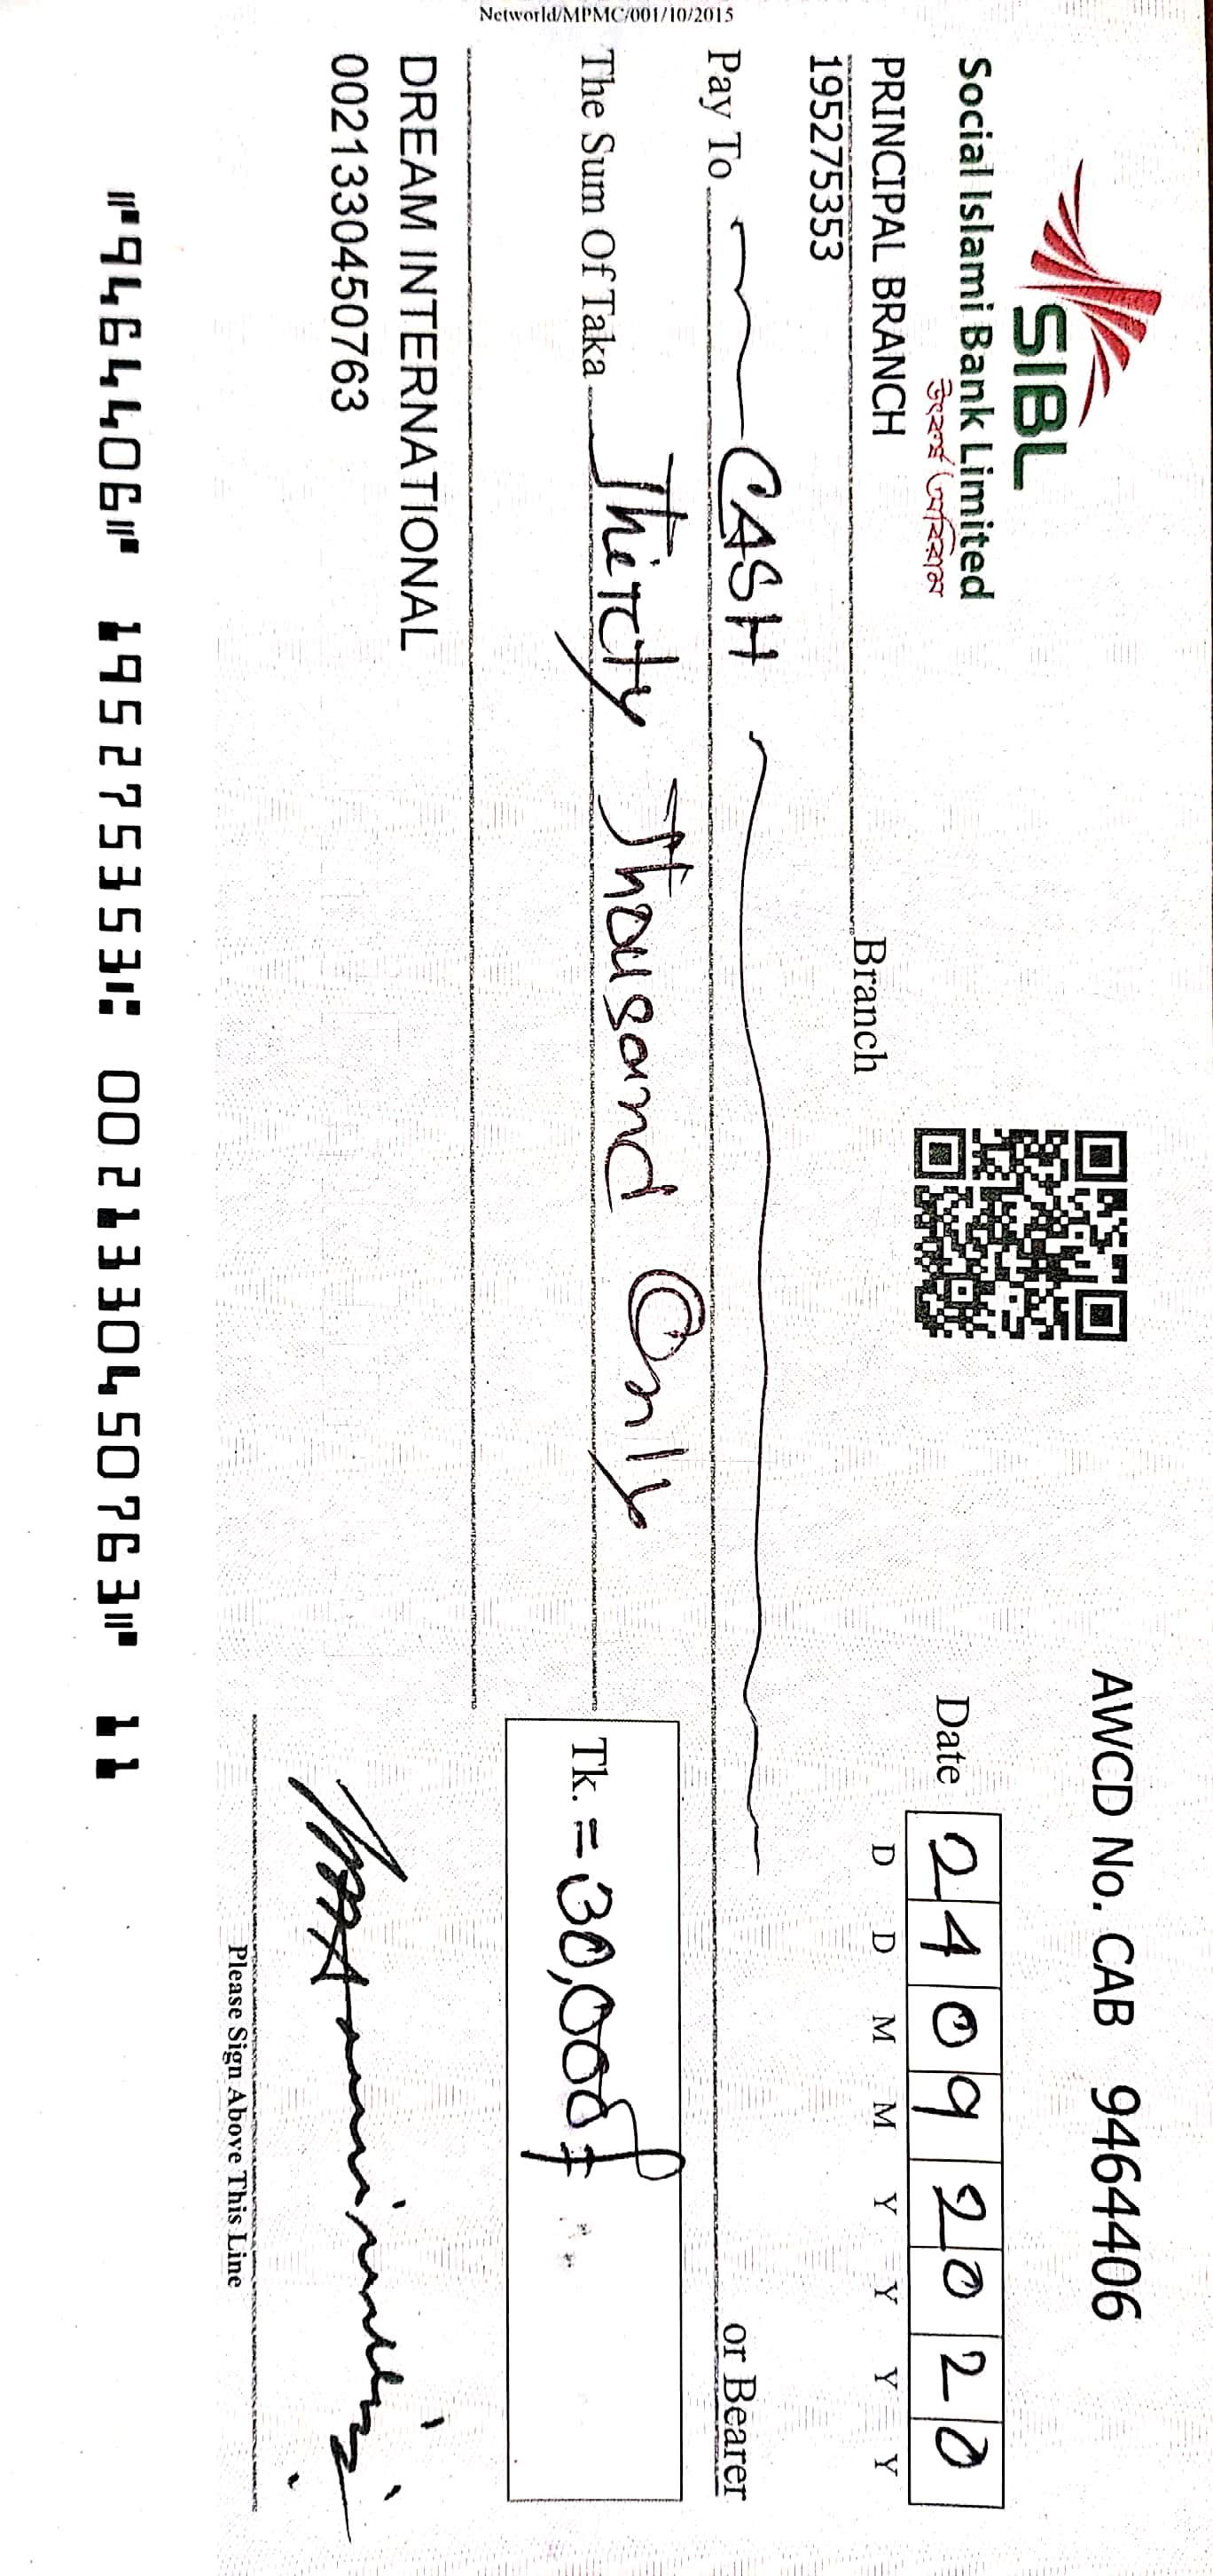 Networld/MPMC/001/10/2015
SIBL
Social Islami Bank Limited
AWCD No. CAB 9464406
PRINCIPAL BRANCH Branch
195275353
Date 24092020
D D M M Y Y Y Y
Pay To CASH or Bearer
The Sum Of Taka Thirty Thousand Only
Tk. = 30,000/=
DREAM INTERNATIONAL
0021330450763
Please Sign Above This Line
⑈9464406⑈ 195275353⑆ 0021330450763⑈ 11